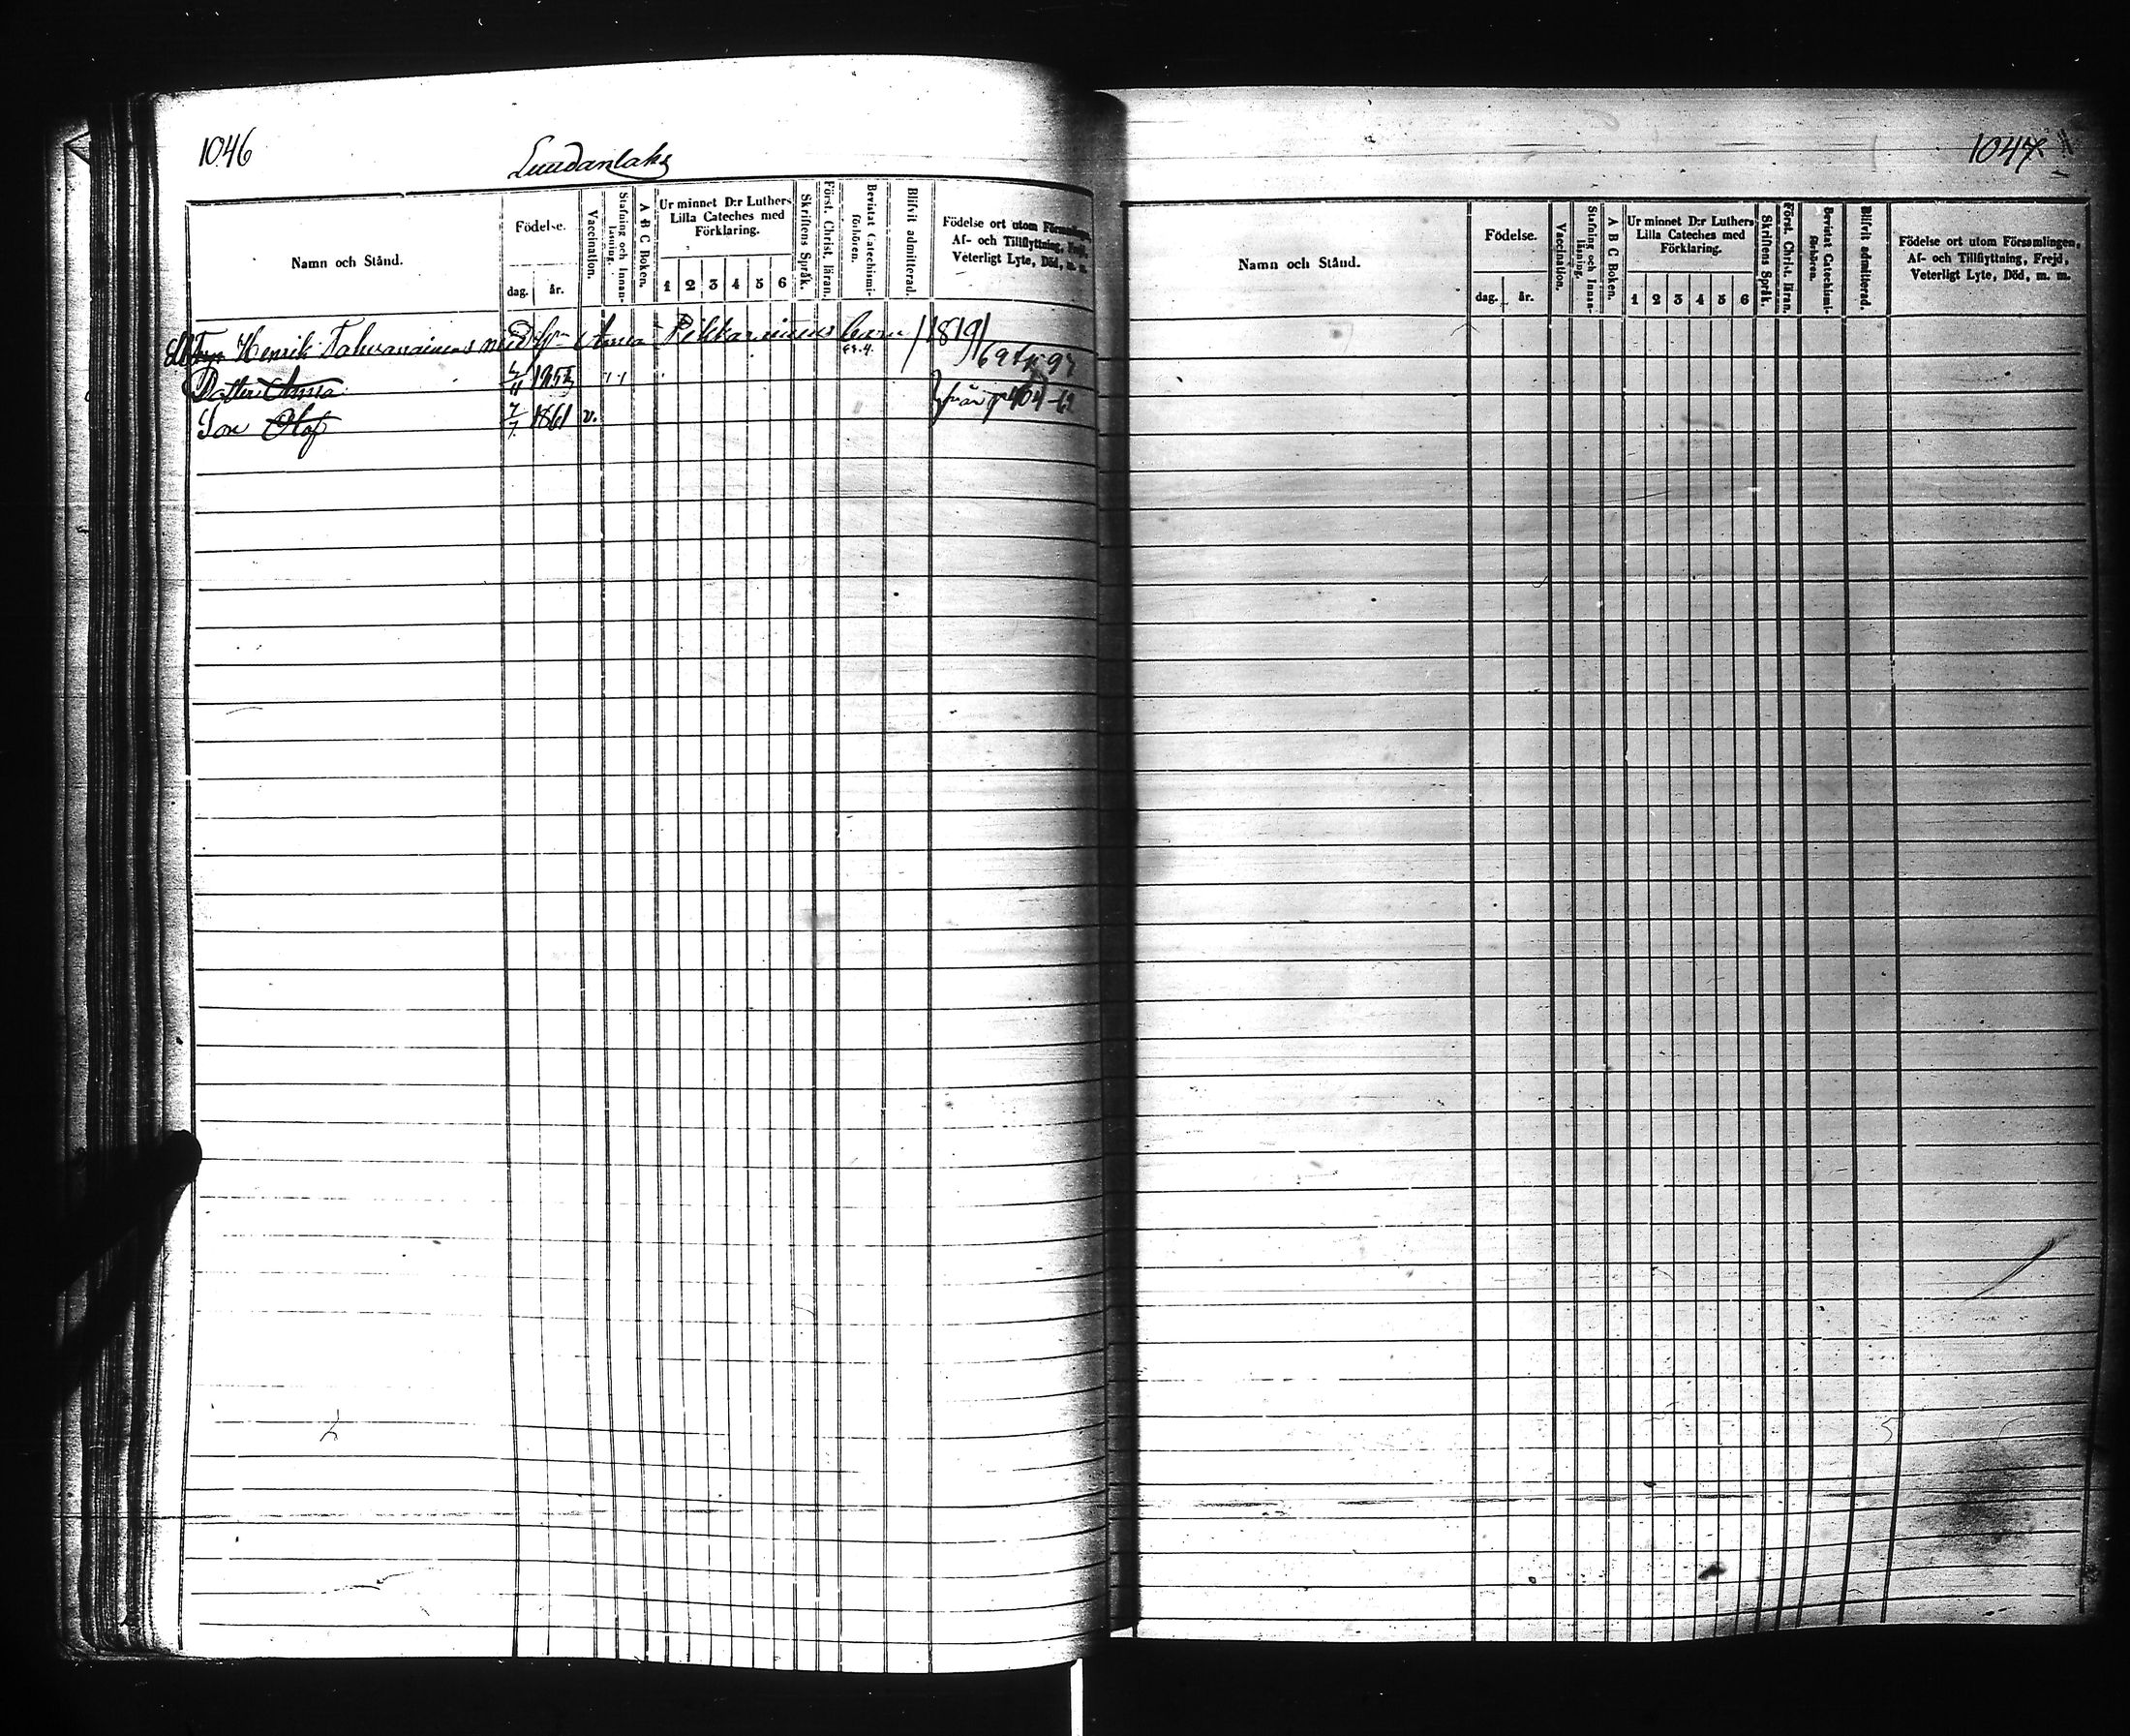 1046
Namn och Stånd.
Födelse.
dag. år.
Vaccination.
Stafning och Innanläsning.
A B C Boken.
Ur minnet D:r Luthers Lilla Cateches med Förklaring.
1 2 3 4 5 6
Skriftens Språk.
Först. Christ. läran.
Bevistat Catechismiförhören.
Blifvit admitterad.
Födelse ort utom Församlingen, Af- och Tillflyttning, Frejd, Veterligt Lyte, Död, m. m.
Henrik Tahvanainens med h Anna Pekkarinens barn /1819/
69
Dotter Anna
Son Olof 7/7 1861 v. från p 404-62
1047
Namn och Stånd.
Födelse.
dag. år.
Vaccination.
Stafning och Innanläsning.
A B C Boken.
Ur minnet D:r Luthers Lilla Cateches med Förklaring.
1 2 3 4 5 6
Skriftens Språk.
Först. Christ. läran.
Bevistat Catechismiförhören.
Blifvit admitterad.
Födelse ort utom Församlingen, Af- och Tillflyttning, Frejd, Veterligt Lyte, Död, m. m.